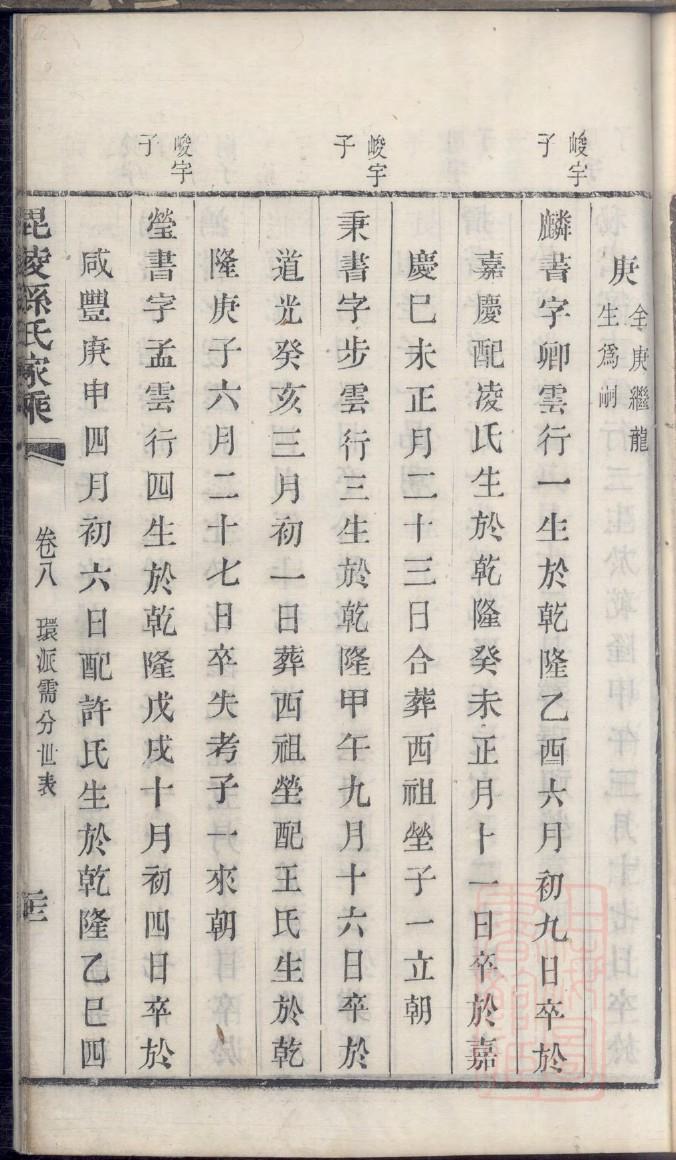 庚
全庚繼龍
生爲嗣
峻宇
子
麟書字卿雲行一生於乾隆乙酉六月初九日卒於
嘉慶配凌氏生於乾隆癸未正月十一日卒於嘉
慶巳未正月二十三日合葬西祖塋子一立朝
峻宇
子
秉書字步雲行三生於乾隆甲午九月十六日卒於
道光癸亥三月初一日葬西祖塋配王氏生於乾
隆庚子六月二十七日卒失考子一來朝
峻宇
子
瑩書字孟雲行四生於乾隆戊戌十月初四日卒於
咸豐庚申四月初六日配許氏生於乾隆乙巳四
毘陵孫氏家乘
卷八
環派需分世表